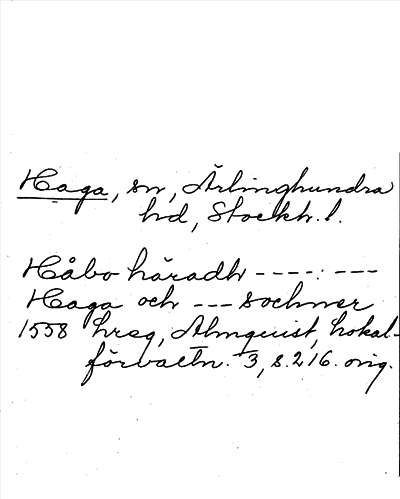 Haga, sn, Ärlinghundra
hd, Stockh. l.
Håbo häradh ----:---
Haga och --- sochner
1558 hreg, Almquist, Lokal-
förvaltn. 3, s. 216. orig.